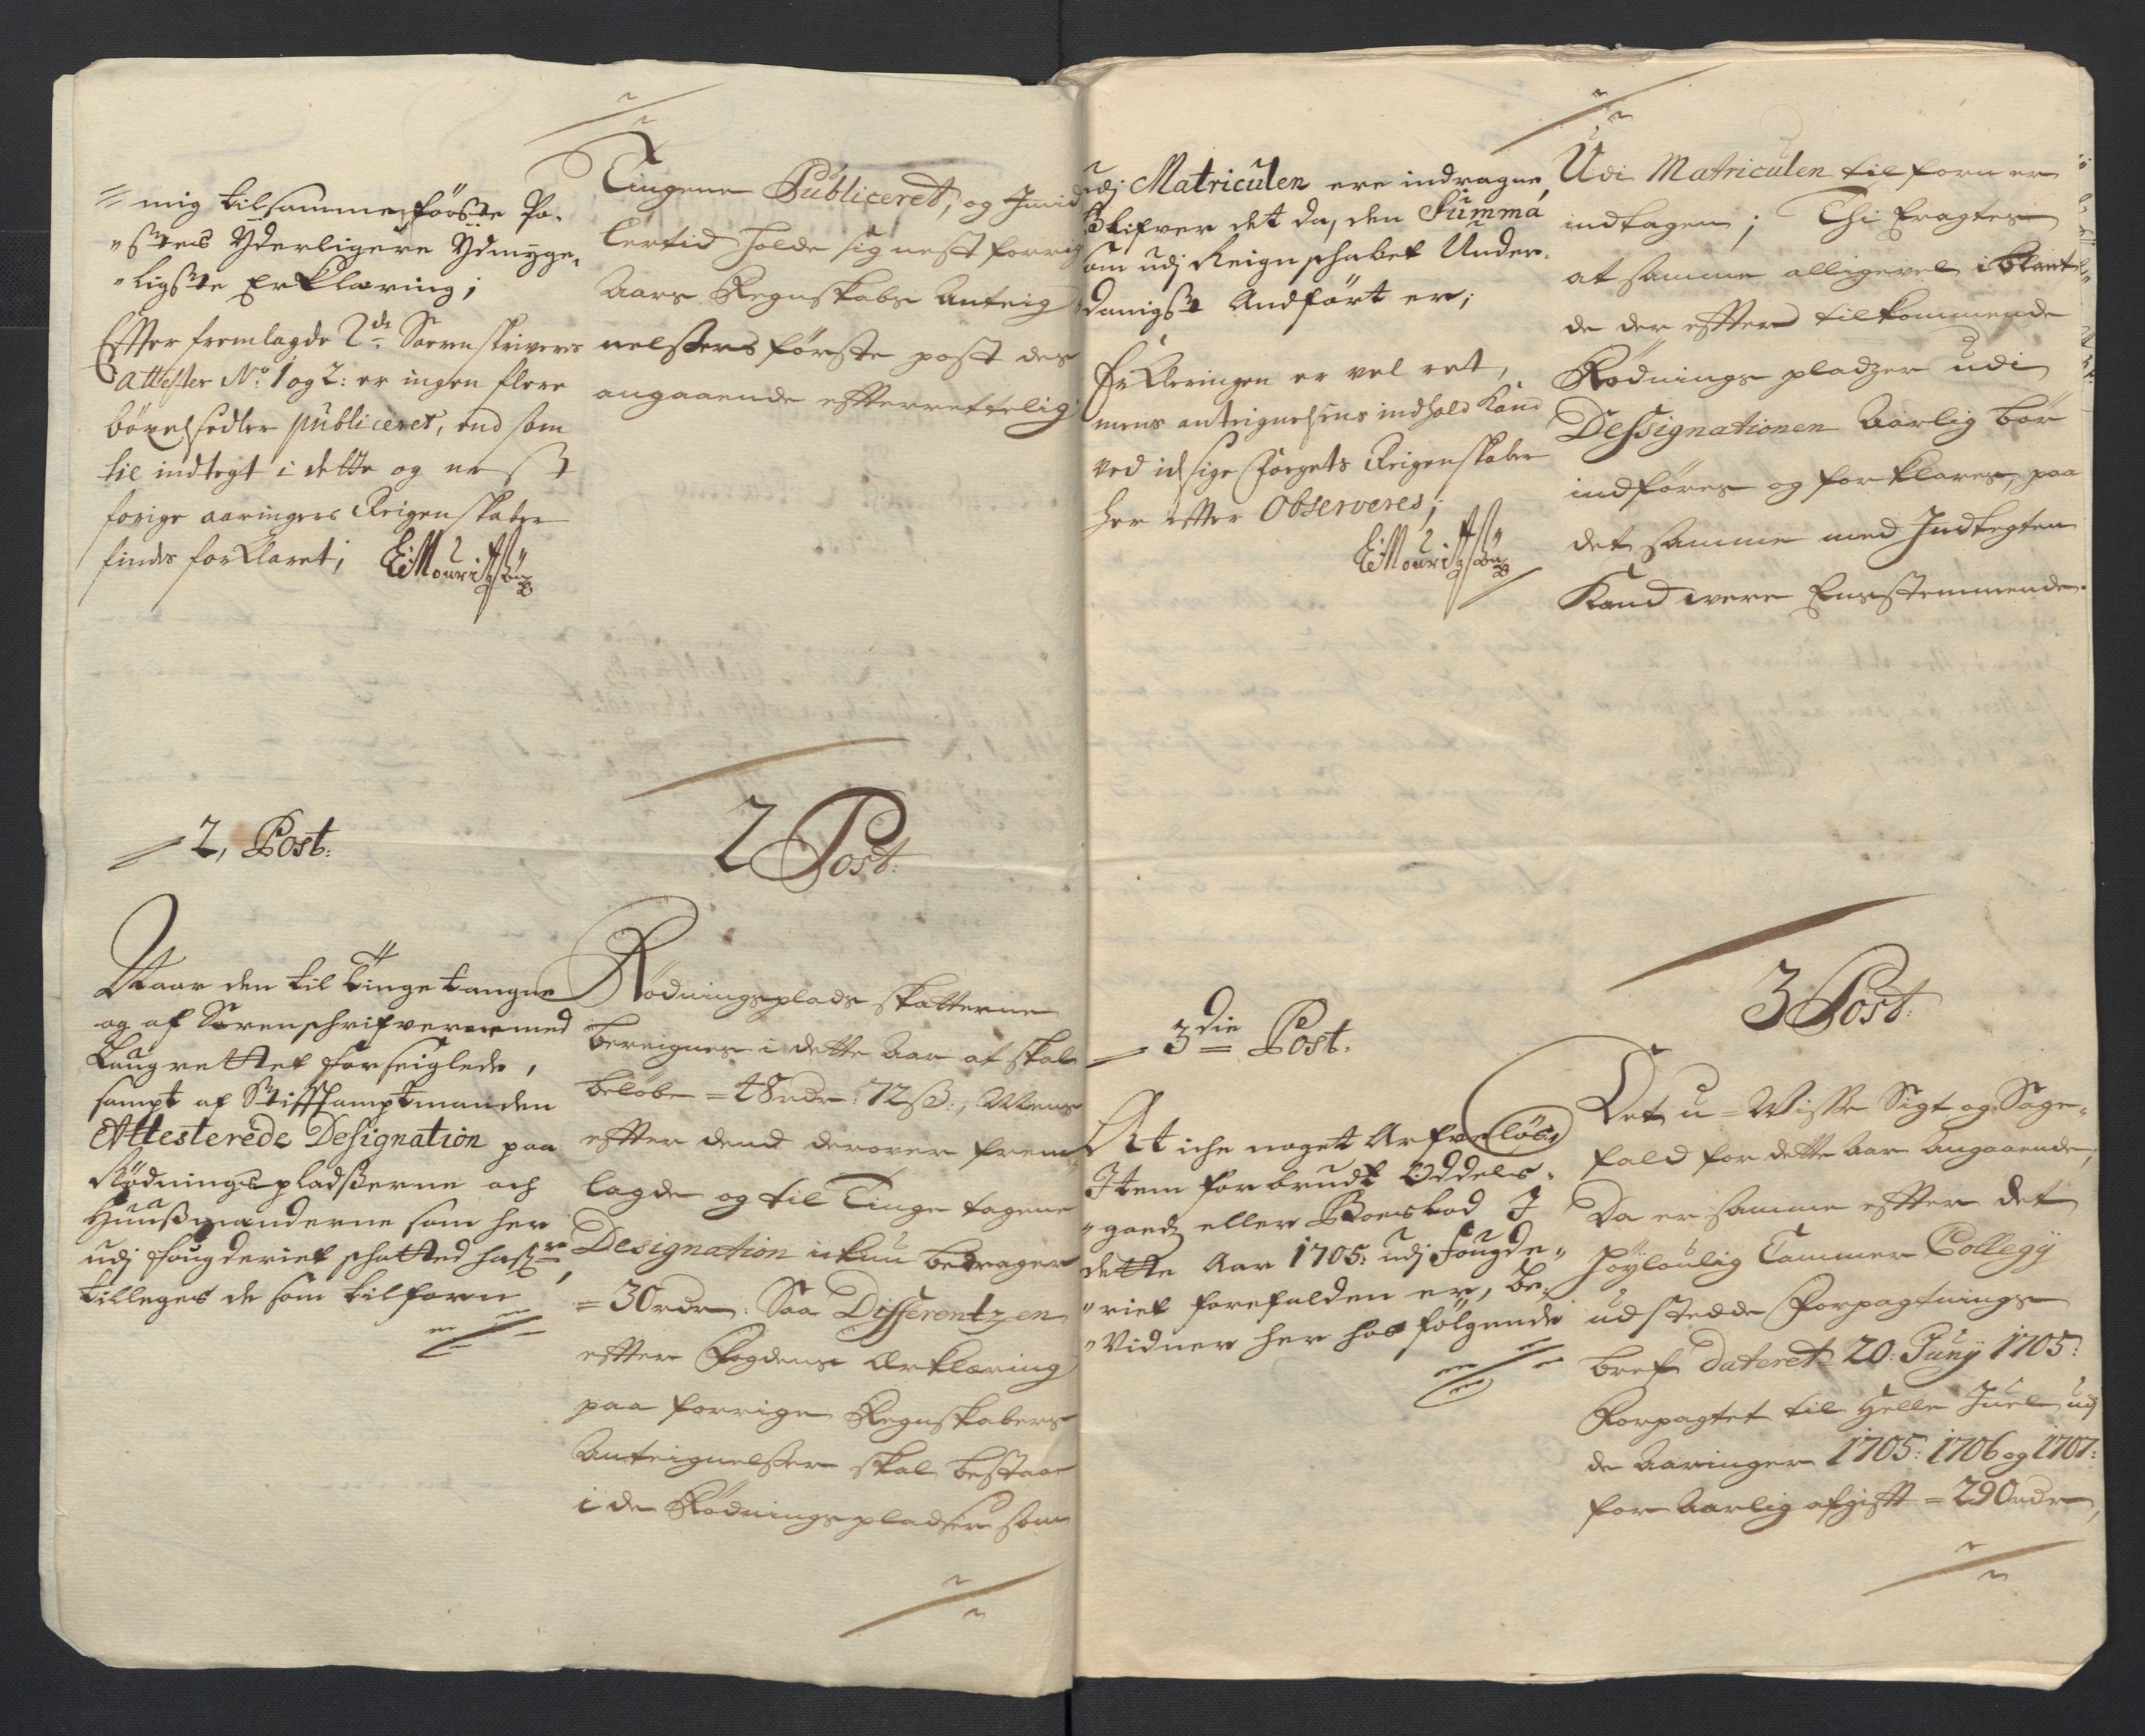 mig til samme förste Po-
"stens Yderligere Ydmyge-
"ligste Erklæring;
Effter fremlagde 2de Sorenskrivers
Attester No. 1 og 2: er ingen flere
böxelsedler publiceret, end som
til indtegt i dette og nest
forige aaringers Reigenskaber
findes forklaret; E: Mouritzsön
2, Post:
Naar den til tinge tangne
og af Sorenschrifveren med
Laugrettet forseiglede,
sampt af Stifftamptmanden
Attesterede Designation paa
Rödningspladsserne och
Huussmænderne som her
udj fougderiet schatted hafr
tilleges de som tilforn
Tingene Publiceret, og Imid
lertid holde sig nest forrig
Aars Regnskabs Anteig
nelssers förste post des
angaaende efterrettelig
2 Post.
Rödningsplads skatterne
bereignes i dette Aar at skal
belöbe = 48 rdr: 72 ß:, Mens
effter dend derover frem-
lagde og til Tinge tagene
Designation ickun bedrager
= 30 rdr: Saa Differentzen
effter Fogdens Erklæring
paa forrige Regnskabers
Anteignelsser skal bestaae
i de Rödningspladser som
udj Matriculen ere indragne,
Blifver det da, den Summa
som udj Reignschabet Under-
"danigst Andfört er;
Erkleringen er vel ret,
mens anteignelsens indhold kand
ved idelige Sorgets Reigenskaber
her effter Observeres;
E: Mouritzsön
3die Post.
At iche noget Arfvelös,
Item forbrudt Oddels-
"goeds eller Boeslod I
dette Aar 1705: udj Fougde-
"riet forefalden er, be-
"Vidner her hos fölgende
Udi Matriculen tilforn er
indtagen; Thi Eragtes
at samme alligevel iblant
de der effter tilkommende
Rödnings pladzer udi
Dessignationen Aarlig bör
indföres og forklares, paa
det samme med Indtegten
Kand were Eensstemmende.
3 Post.
Det u=Wisse Sigt og Sage-
fald for dette Aar Angaaende,
Da er samme effter det
Höyloulig Cammer Collegij
udstedde Forpagtnings
bref dateret 20: Junij 1705:
Forpagtet til Helle Juel udj
de Aaringer 1705: 1706 og 1707:
for Aarlig afgift = 290 rdr,